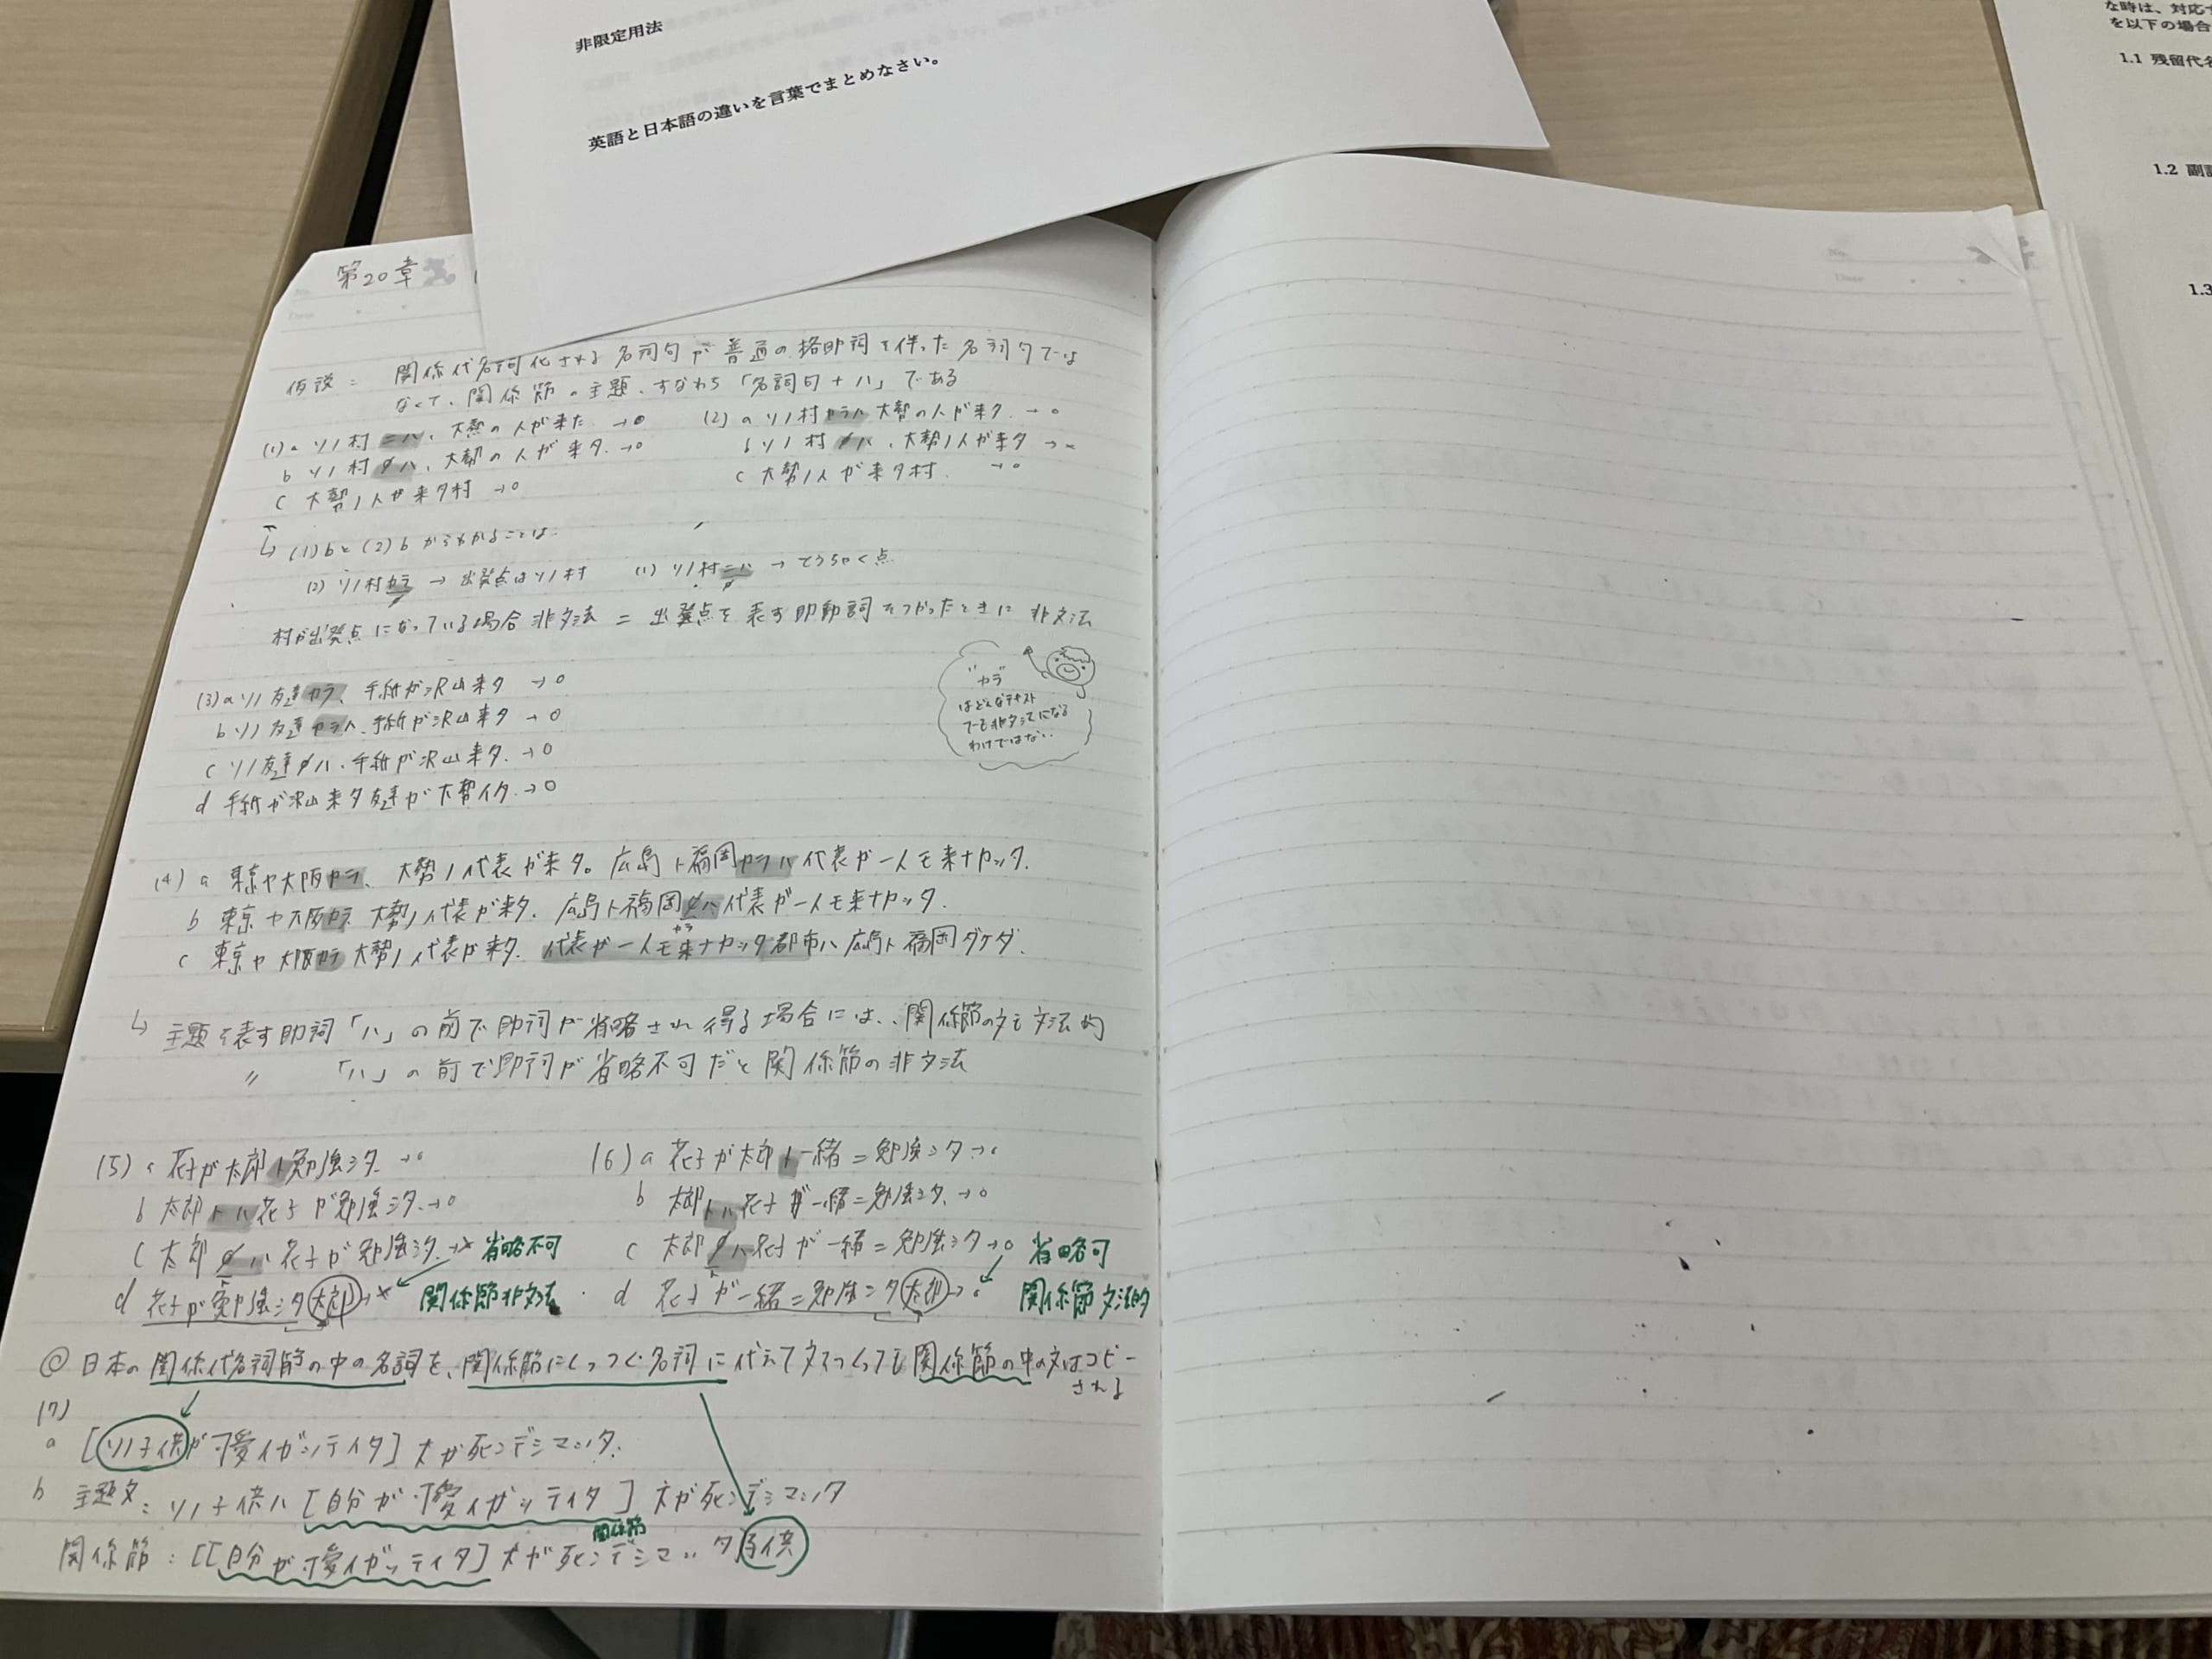 非限定用法
英語と日本語の違いを言葉でまとめなさい。
な時は、対応
を以下の場合
1.1 残留代名
1.2 副詞
1.3
第20章
仮説: 関係代名詞化される名詞句が普通の格助詞を伴った名詞句では
なくて、関係節の主題、すなわち「名詞句+ハ」である
(1) a ソノ村ニハ、大勢の人が来た →○
b ソノ村∅ハ、大勢の人が来タ. →○
c 大勢ノ人が来タ村 →○
(2) a ソノ村カラハ 大勢の人が来タ. →○
b ソノ村∅ハ、大勢ノ人が来タ →×
c 大勢ノ人が来タ村. →○
↳ (1)bと(2)bからわかることは
(2) ソノ村カラ → 出発点はソノ村 (1) ソノ村ニハ → とうちゃく点
∅ ∅
村が出発点になっている場合非文法 = 出発点を表す助動詞をつかったときに非文法
(3) a ソノ友達カラ、手紙が沢山来タ →○
b ソノ友達カラハ、手紙が沢山来タ →○
c ソノ友達∅ハ、手紙が沢山来タ. →○
d 手紙が沢山来タ友達が大勢イタ. →○
"カラ"
はどんなテキスト
でも非文法になる
わけではない.
(4) a 東京ヤ大阪カラ、大勢ノ代表が来タ。広島ト福岡カラハ代表が一人モ来ナカッタ.
b 東京ヤ大阪カラ 大勢ノ代表が来タ. 広島ト福岡∅ハ代表が一人モ来ナカッタ.
カラ
c 東京ヤ大阪カラ 大勢ノ代表が来タ. 代表が一人モ来ナカッタ都市ハ広島ト福岡ダケダ.
↳ 主題を表す助詞「ハ」の前で助詞が省略され得る場合には、関係節の文も文法的
〃 「ハ」の前で助詞が省略不可だと関係節の非文法
(5) a 花子が太郎ト勉強シタ. →○
b 太郎トハ花子が勉強シタ. →○
c 太郎∅ハ花子が勉強シタ. →× 省略不可
ト
d 花子が勉強シタ太郎 →× 関係節非文法
(6) a 花子が太郎ト一緒ニ勉強シタ →○
b 太郎トハ花子が一緒ニ勉強シタ. →○
c 太郎∅ハ花子が一緒ニ勉強シタ →○ 省略可
ト
d 花子が一緒ニ勉強シタ太郎 →○ 関係節文法的
◎ 日本の関係代名詞節の中の名詞を、関係節にくっつく名詞に代えて文をつくっても関係節の中の文はコピー
される
(7)
a [ソノ子供が可愛イガッテイタ] 犬が死ンデシマッタ.
b 主題文: ソノ子供ハ [自分が可愛イガッテイタ] 犬が死ンデシマッタ
関係節
関係節: [[自分が可愛イガッテイタ] 犬が死ンデシマッタ]子供